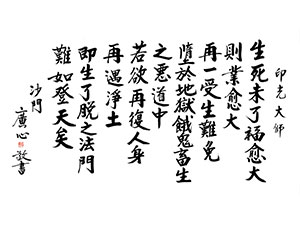 印光大师
生死未了福愈大
则業愈大
再一受生難免
墮於地獄餓鬼畜生
之惡道中
若欲再復人身
再遇淨土
即生了脱之法門
難如登天矣
沙門
廣心敬書